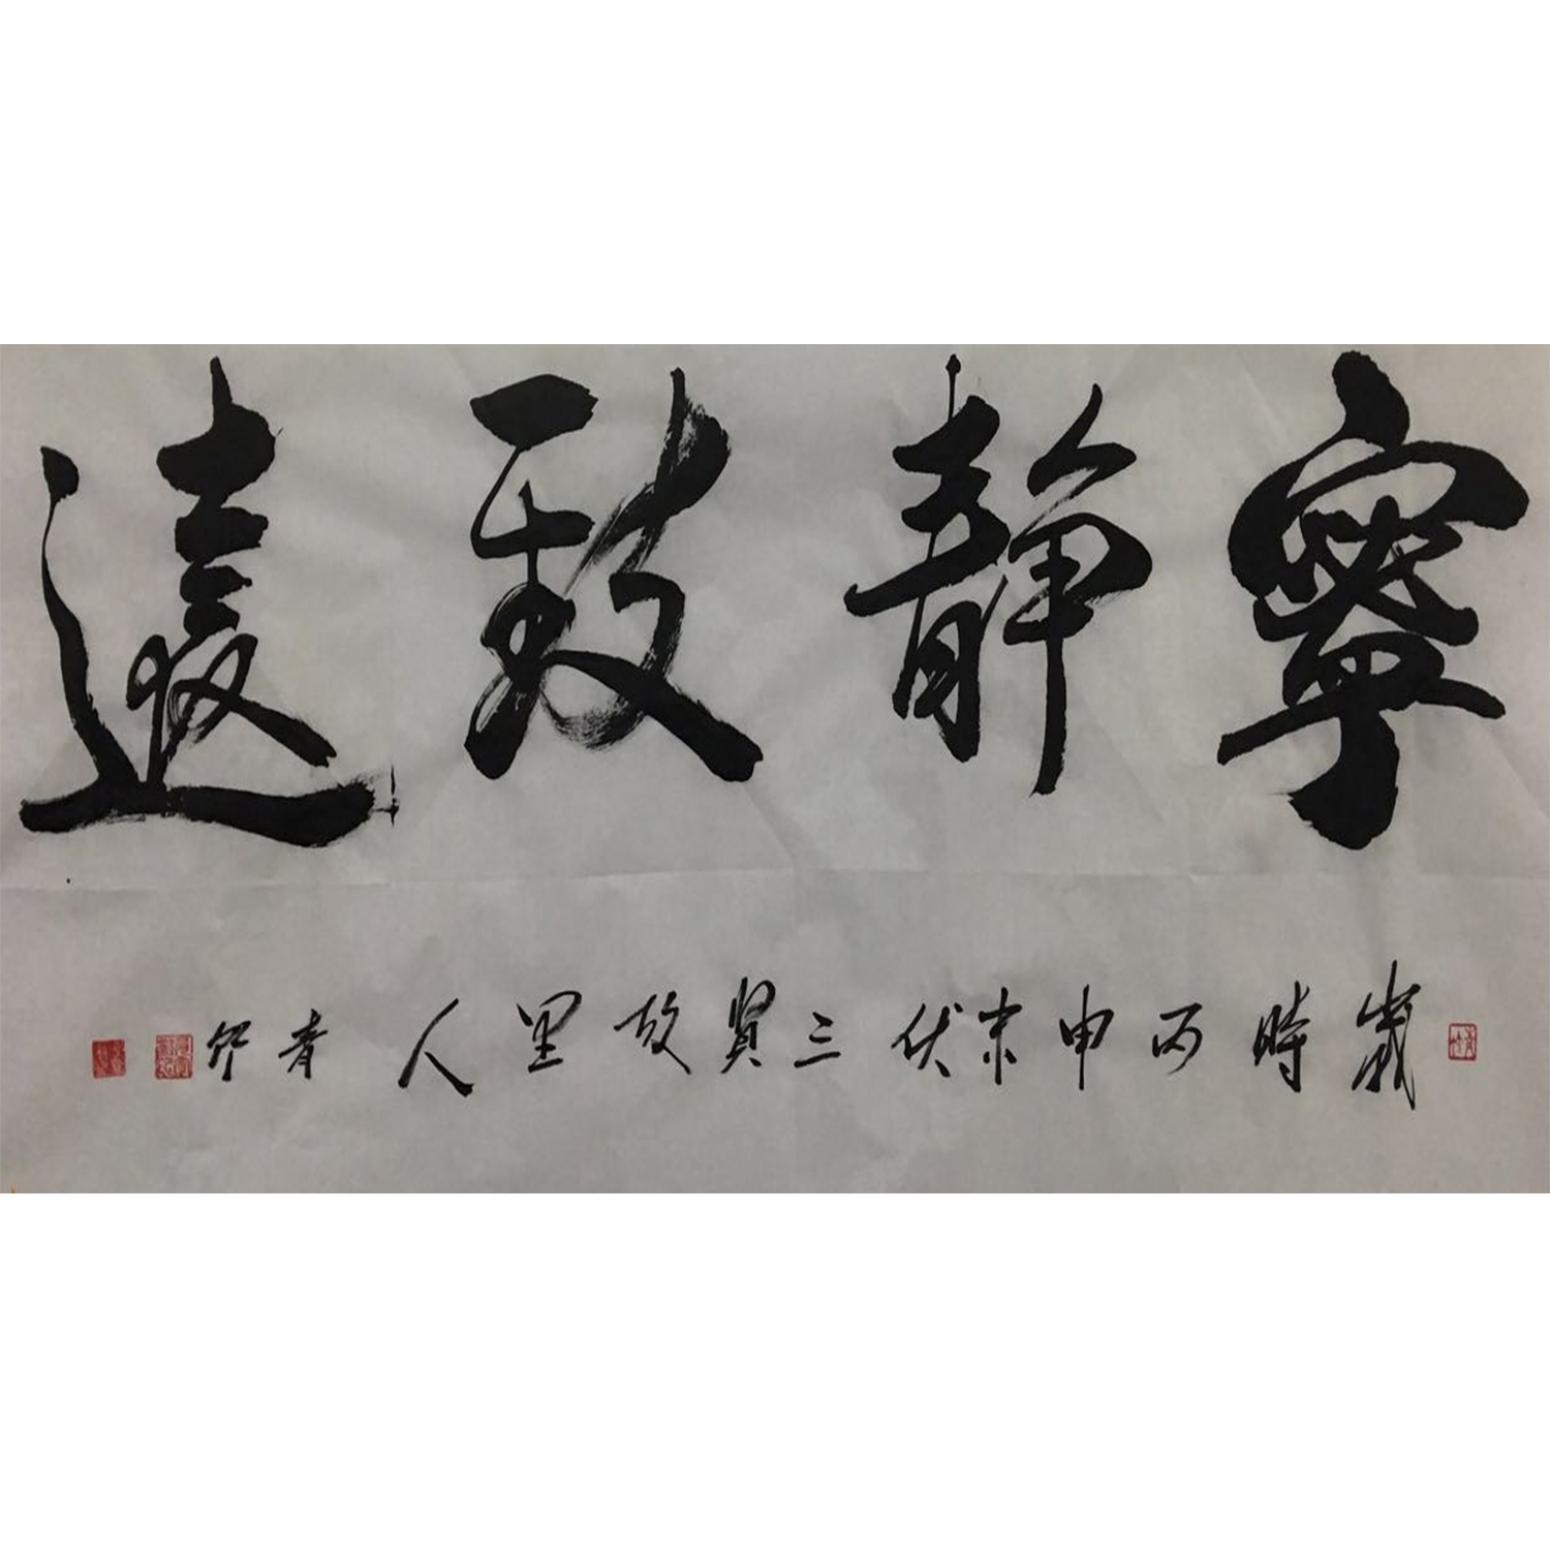 寧靜致遠
歲時丙申末伏三賢故里人青